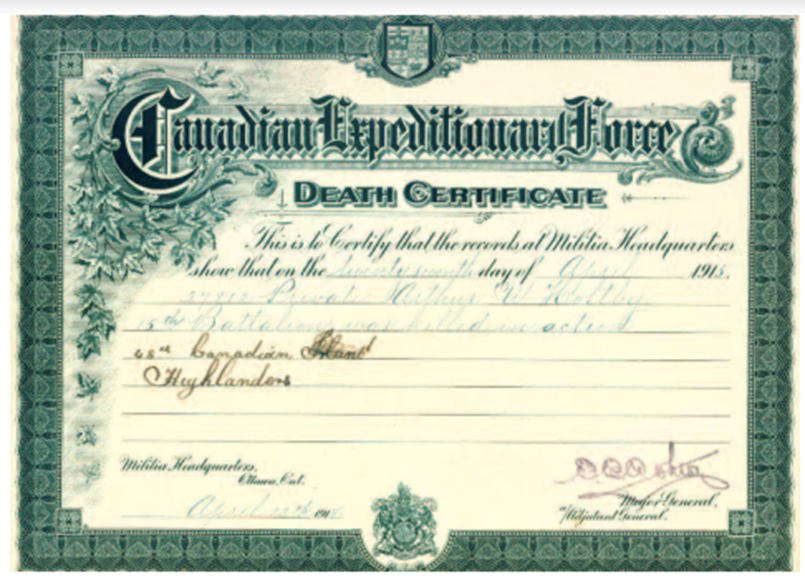 Canadian Expeditionary Force
DEATH CERTIFICATE
This is to Certify that the records at Militia Headquarters
show that on the twenty seventh day of April 1915,
Private Arthur W Holtby
15th Battalion was killed in action
48th Canadian
Highlanders
Militia Headquarters,
Ottawa, Ont.
April 12th 191
Major General,
Adjutant General.